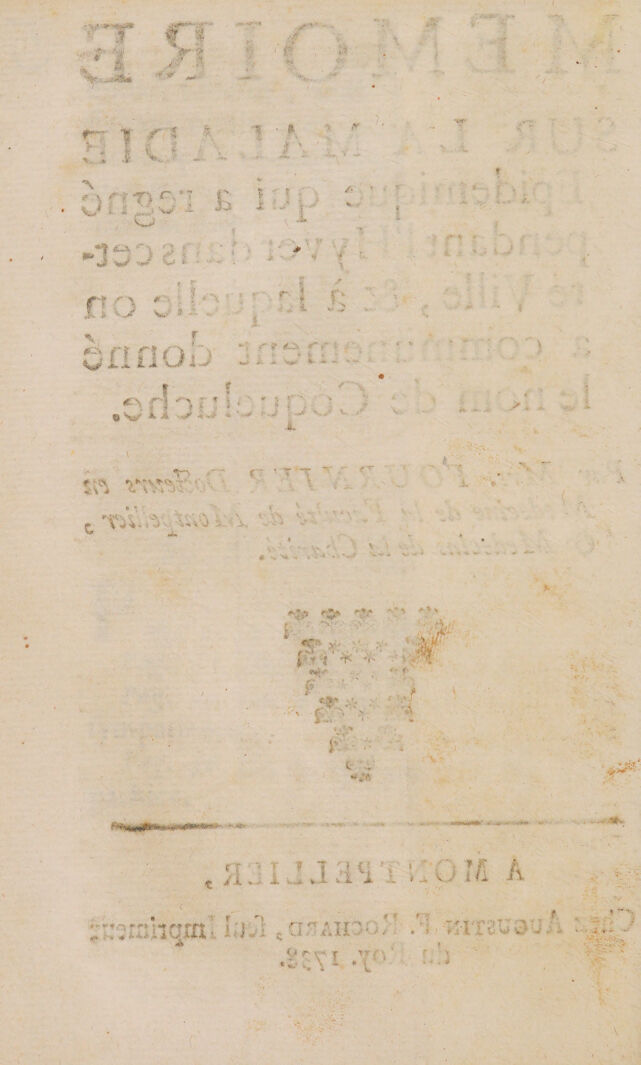 MEMOIRE
SUR LA MALADIE
Epidemique qui a regné
pendant l'Hyver dans cet-
te Ville, & à laquelle on
a communément donné
le nom de Coqueluche.
Par Mre. FOURNIER Docteurs en
Medecine de la Faculté de Montpellier,
& Medecins de la Charité.
A MONTPELLIER,
Chez AUGUSTIN F. ROCHARD, seul Imprimeur
du Roy. 1738.